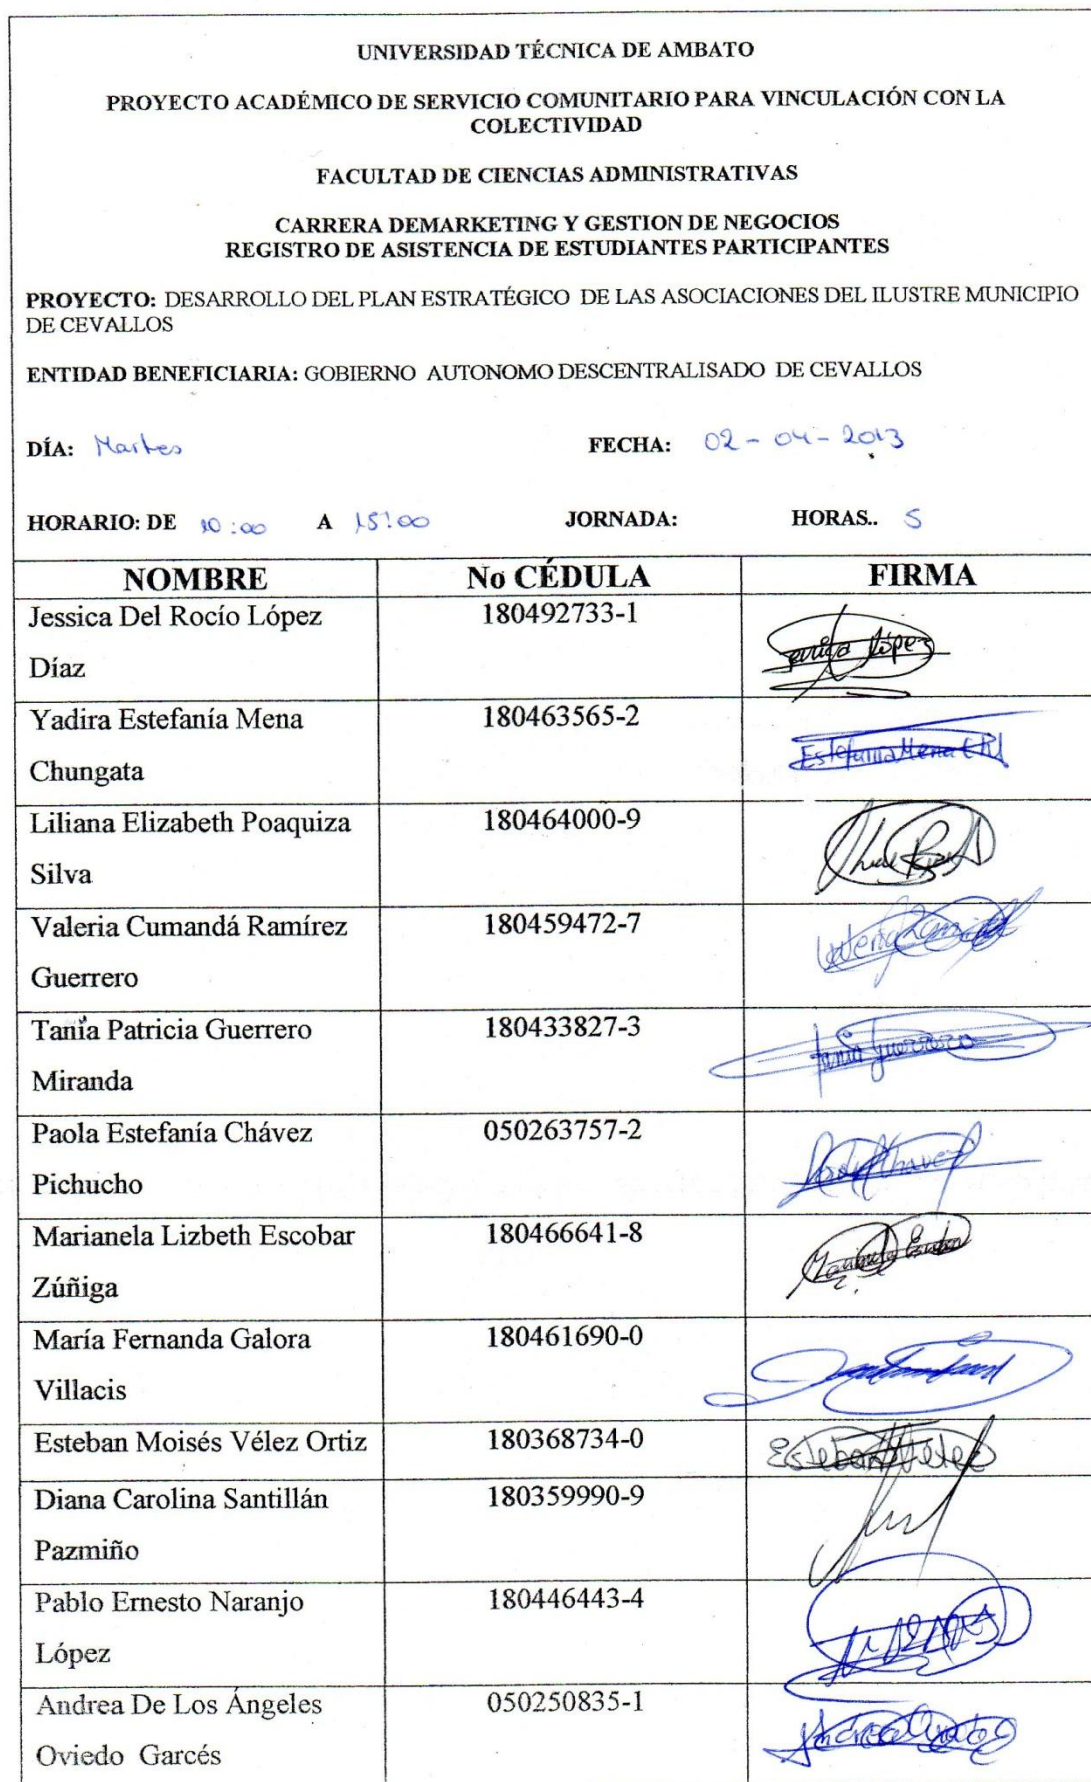 UNIVERSIDAD TÉCNICA DE AMBATO
PROYECTO ACADÉMICO DE SERVICIO COMUNITARIO PARA VINCULACIÓN CON LA
COLECTIVIDAD
FACULTAD DE CIENCIAS ADMINISTRATIVAS
CARRERA DEMARKETING Y GESTION DE NEGOCIOS
REGISTRO DE ASISTENCIA DE ESTUDIANTES PARTICIPANTES
PROYECTO: DESARROLLO DEL PLAN ESTRATÉGICO DE LAS ASOCIACIONES DEL ILUSTRE MUNICIPIO
DE CEVALLOS
ENTIDAD BENEFICIARIA: GOBIERNO AUTONOMO DESCENTRALISADO DE CEVALLOS
DÍA: Martes FECHA: 02-04-2013
HORARIO: DE 10:00 A 15:00 JORNADA: HORAS.. 5
NOMBRE No CÉDULA FIRMA
Jessica Del Rocío López 180492733-1 Jessica López
Díaz
Yadira Estefanía Mena 180463565-2 Estefania Mena
Chungata
Liliana Elizabeth Poaquiza 180464000-9
Silva
Valeria Cumandá Ramírez 180459472-7 Valeria Ramirez
Guerrero
Tanía Patricia Guerrero 180433827-3 Tania Guerrero
Miranda
Paola Estefanía Chávez 050263757-2 Paola Chavez
Pichucho
Marianela Lizbeth Escobar 180466641-8 Marianela Escobar
Zúñiga
María Fernanda Galora 180461690-0
Villacis
Esteban Moisés Vélez Ortiz 180368734-0 Esteban Vélez
Diana Carolina Santillán 180359990-9
Pazmiño
Pablo Ernesto Naranjo 180446443-4
López
Andrea De Los Ángeles 050250835-1 Andrea Oviedo
Oviedo Garcés